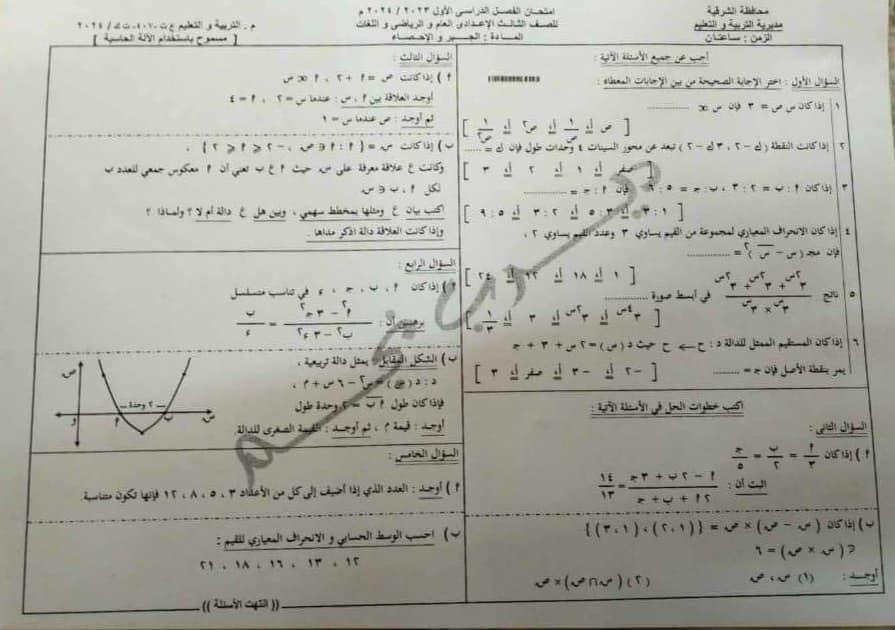 محافظة الشرقية
مديرية التربية و التعليم
الزمن : ساعتان
امتحان الفصل الدراسى الأول ٢٠٢٣ / ٢٠٢٤ م
للصف الثالث الإعدادى العام و الرياضى و اللغات
المادة : الجبر و الإحصاء
م . التربية و التعليم ع ت -٤٠٧- ت ك / ٢٠٢٤
[ مسموح باستخدام الآلة الحاسبة ]
أجب عن جميع الأسئلة الآتية :
السؤال الأول : اختر الإجابة الصحيحة من بين الإجابات المعطاه :
١ إذا كان س ص = ٣ فإن س ∝ ............
[ ص أ، ١/ص أ، ص٢ أ، ١/ص٢ ]
٢ إذا كانت النقطة ( ك - ٢ ، ٣ ك - ٢ ) تبعد عن محور السينات ٤ وحدات طول فإن ك = ......
[ صفر أ، ١ أ، ٢ أ، ٣ ]
٣ إذا كان أ : ب = ٢ : ٣ ، ب : جـ = ٥ : ٦ فإن أ : جـ = ............
[ ١ : ٣ أ، ٣ : ٥ أ، ٢ : ٣ أ، ٥ : ٩ ]
٤ إذا كان الانحراف المعياري لمجموعة من القيم يساوي ٣ وعدد القيم يساوي ٢ ،
فإن مجـ ( س - س̄ )٢ = ............
[ ١ أ، ١٨ أ، ١٢ أ، ٢٤ ]
٥ ناتج (٣٢س + ٣٢س + ٣٢س) / (٣س × ٣س) في أبسط صورة ............
[ ٣٤س أ، ٣٢س أ، ٣ أ، ١/٣ ]
٦ إذا كان المستقيم الممثل للدالة د : ح ← ح حيث د ( س ) = ٢ س + ٣ + جـ
يمر بنقطة الأصل فإن جـ = ............
[ -٢ أ، -٣ أ، صفر أ، ٣ ]
اكتب خطوات الحل في الأسئلة الآتية :
السؤال الثانى :
أ ) إذا كان أ/٣ = ب/٢ = جـ/٥
اثبت أن : (أ - ٢ ب + ٣ جـ) / (٢ أ + ب + جـ) = ١٤/١٣
ب ) إذا كان ( س - ص ) × ص = { ( ١ ، ٢ ) ، ( ١ ، ٣ ) }
ن ( س × ص ) = ٦
أوجد : ( ١ ) س ، ص ( ٢ ) ( س ∩ ص ) × ص
السؤال الثالث :
أ ) إذا كانت ص = أ + ٢ ، أ ∝ س
أوجد العلاقة بين أ ، س : عندما س = ٢ ، أ = ٤
ثم أوجد : ص عندما س = ١
ب ) إذا كانت س = { أ : أ ∈ ص ، -٢ ⩽ أ ⩽ ٢ } ،
وكانت ع علاقة معرفة على س حيث أ ع ب تعني أن أ معكوس جمعي للعدد ب
لكل أ ، ب ∈ س
اكتب بيان ع ومثلها بمخطط سهمي ، وبين هل ع دالة أم لا ؟ ولماذا ؟
وإذا كانت العلاقة دالة اذكر مداها .
السؤال الرابع :
أ ) إذا كان أ ، ب ، جـ ، ء في تناسب متسلسل
برهن أن : (أ٢ - ٣ جـ٢) / (ب٢ - ٣ ء٢) = ب/ء
ب ) الشكل المقابل : يمثل دالة تربيعية ،
د : د ( س ) = س٢ - ٦ س + م ،
فإذا كان طول أ ب = ٢ وحدة طول
أوجد : قيمة م ، ثم أوجد : القيمة الصغرى للدالة .
ص
٢ وحدة
س
ب
أ
و
السؤال الخامس :
أ ) أوجد : العدد الذي إذا أضيف إلى كل من الأعداد ٣ ، ٥ ، ٨ ، ١٢ فإنها تكون متناسبة .
ب ) احسب الوسط الحسابي و الانحراف المعياري للقيم :
١٢ ، ١٣ ، ١٦ ، ١٨ ، ٢١
(( انتهت الأسئلة ))